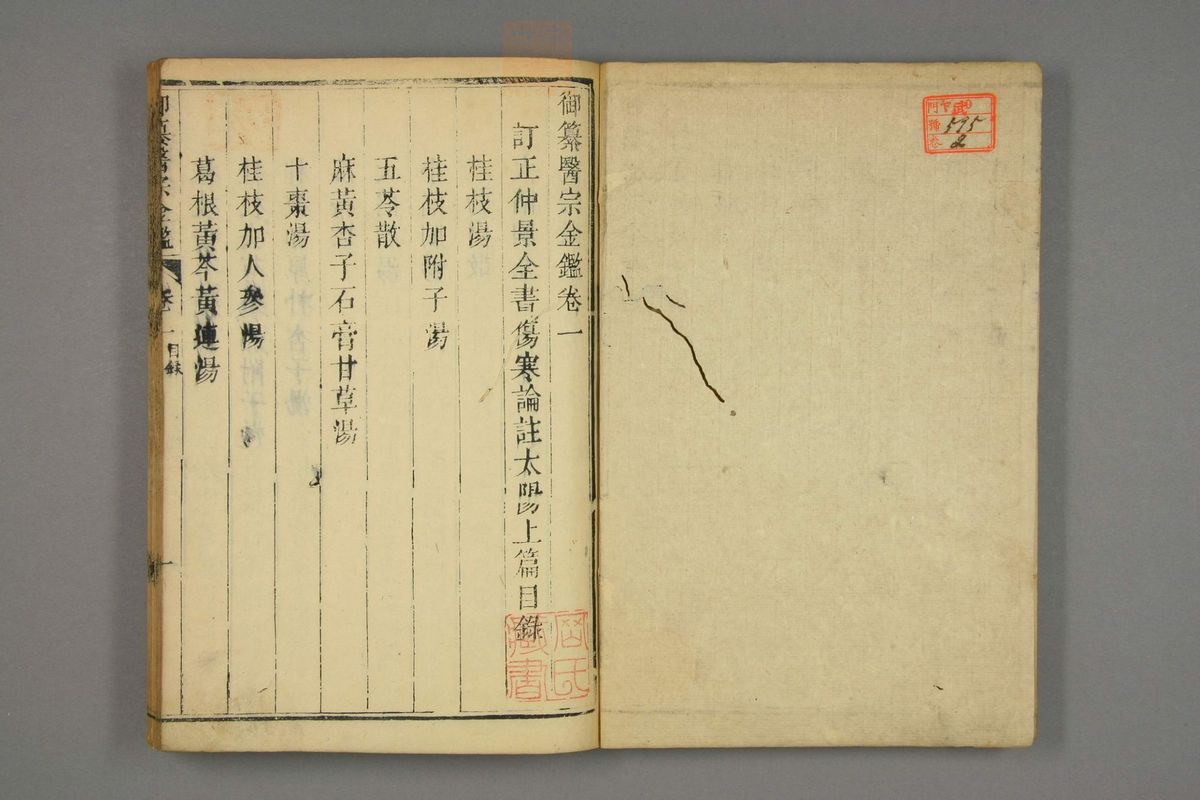 門 ヤ 武
號 595
卷 2
御纂醫宗金鑑卷一
訂正仲景全書傷寒論註太陽上篇目錄
桂枝湯
桂枝加附子湯
五苓散
麻黃杏子石膏甘草湯
十棗湯
桂枝加人參湯
葛根黃芩黃連湯
御纂醫宗金鑑
卷一目錄
一
藏書